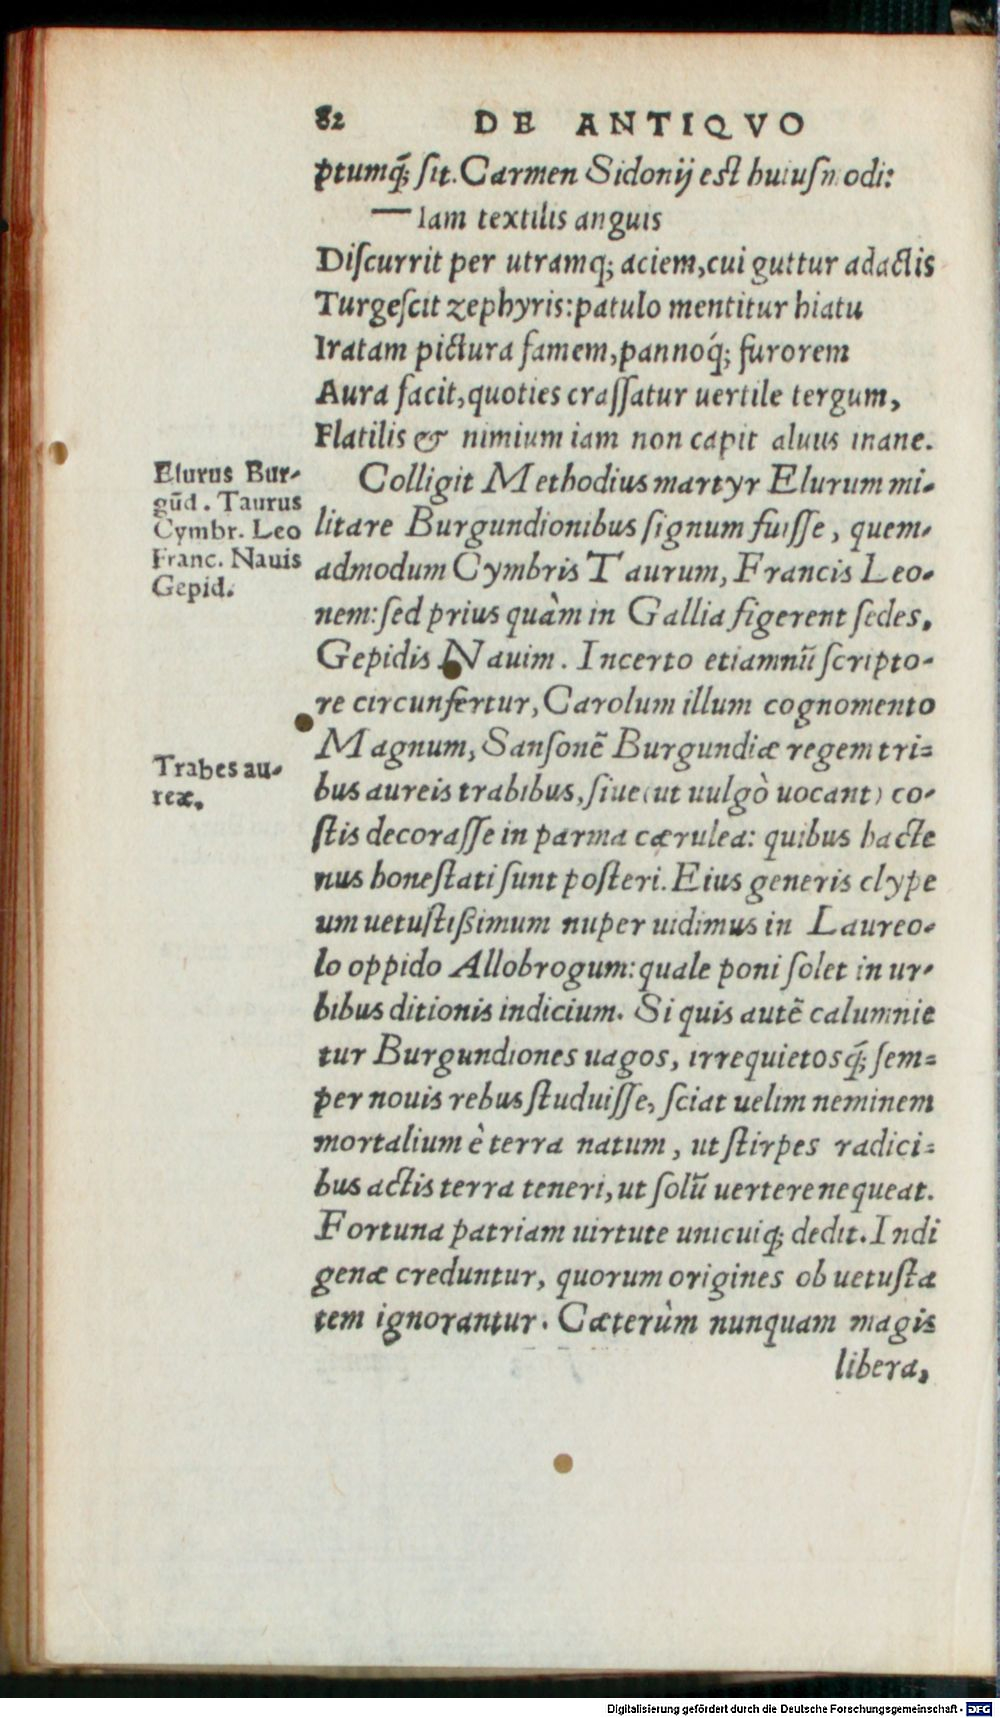 82 DE ANTIQVO
ptumq́; ſit. Carmen Sidonij eſt huiuſmodi:
— Iam textilis anguis
Diſcurrit per utramq; aciem, cui guttur adactis
Turgeſcit zephyris: patulo mentitur hiatu
Iratam pictura famem, pannoq́; furorem
Aura facit, quoties craſſatur uertile tergum,
Flatilis & nimium iam non capit aluus inane.
Elurus Bur-
gūd. Taurus
Cymbr. Leo
Franc. Nauis
Gepid.
Colligit Methodius martyr Elurum mi-
litare Burgundionibus ſignum fuiſſe, quem-
admodum Cymbris Taurum, Francis Leo-
nem: ſed prius quàm in Gallia figerent ſedes,
Gepidis Nauim. Incerto etiamnū ſcripto-
re circunfertur, Carolum illum cognomento
Magnum, Sanſonē Burgundiæ regem tri-
Trabes au-
reæ.
bus aureis trabibus, ſiue (ut uulgò uocant) co-
ſtis decoraſſe in parma cærulea: quibus hacte
nus honeſtati ſunt poſteri. Eius generis clype
um uetuſtißimum nuper uidimus in Laureo-
lo oppido Allobrogum: quale poni ſolet in ur-
bibus ditionis indicium. Si quis autē calumnie
tur Burgundiones uagos, irrequietosq́; ſem-
per nouis rebus ſtuduiſſe, ſciat uelim neminem
mortalium è terra natum, ut ſtirpes radici-
bus actis terra teneri, ut ſolū uertere nequeat.
Fortuna patriam uirtute unicuiq; dedit. Indi
genæ creduntur, quorum origines ob uetuſta
tem ignorantur. Cæterùm nunquam magis
libera,
Digitalisierung gefördert durch die Deutsche Forschungsgemeinschaft - DFG